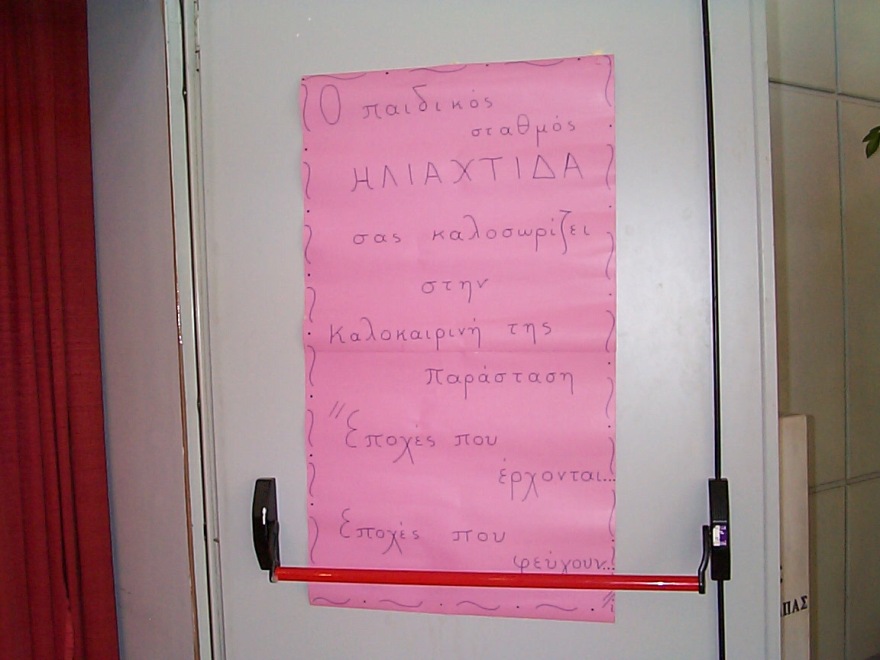 Ο παιδικός
σταθμός
ΗΛΙΑΧΤΙΔΑ
σας καλοσωρίζει
στην
Καλοκαιρινή της
Παράσταση
"Εποχές που
έρχονται...
Εποχές που
φεύγουν..."